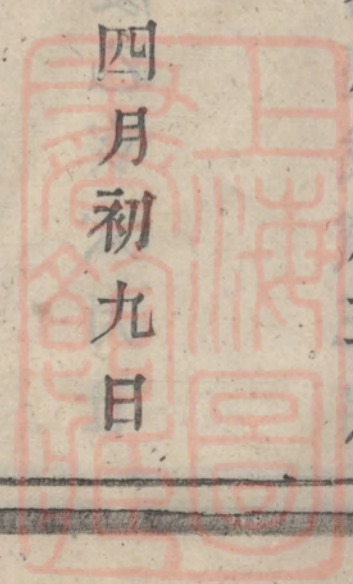 四月初九日
上海圖
書館藏